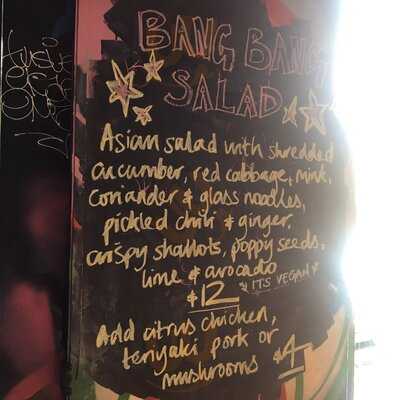 BANG BANG
SALAD
Asian salad with shredded
cucumber, red cabbage, mint,
coriander & glass noodles,
pickled chili & ginger,
crispy shallots, poppy seeds,
lime & avocado
* ITS VEGAN *
$12
Add citrus chicken,
teriyaki pork or
mushrooms $4